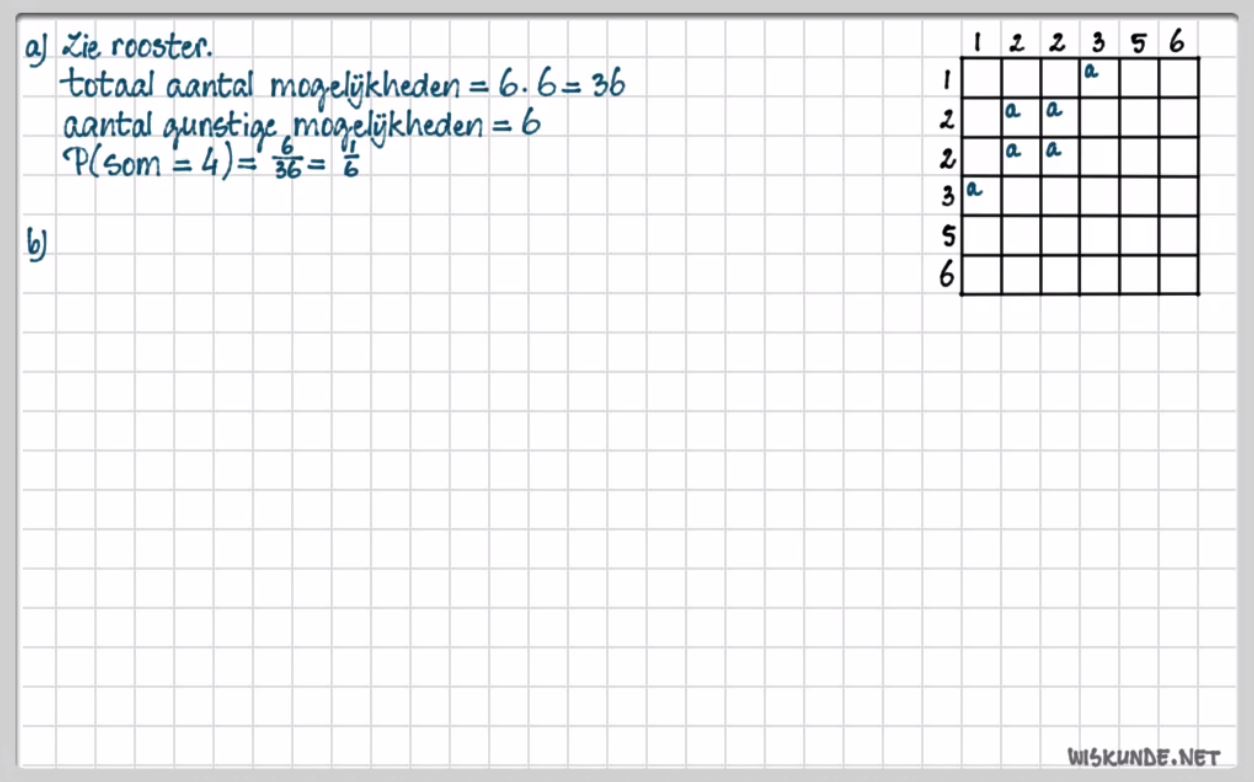 a) Zie rooster.
totaal aantal mogelijkheden = 6 · 6 = 36
aantal gunstige mogelijkheden = 6
P(som = 4) = 6/36 = 1/6
b)
1 2 2 3 5 6
1 a
2 a a
2 a a
3 a
5
6
WISKUNDE.NET